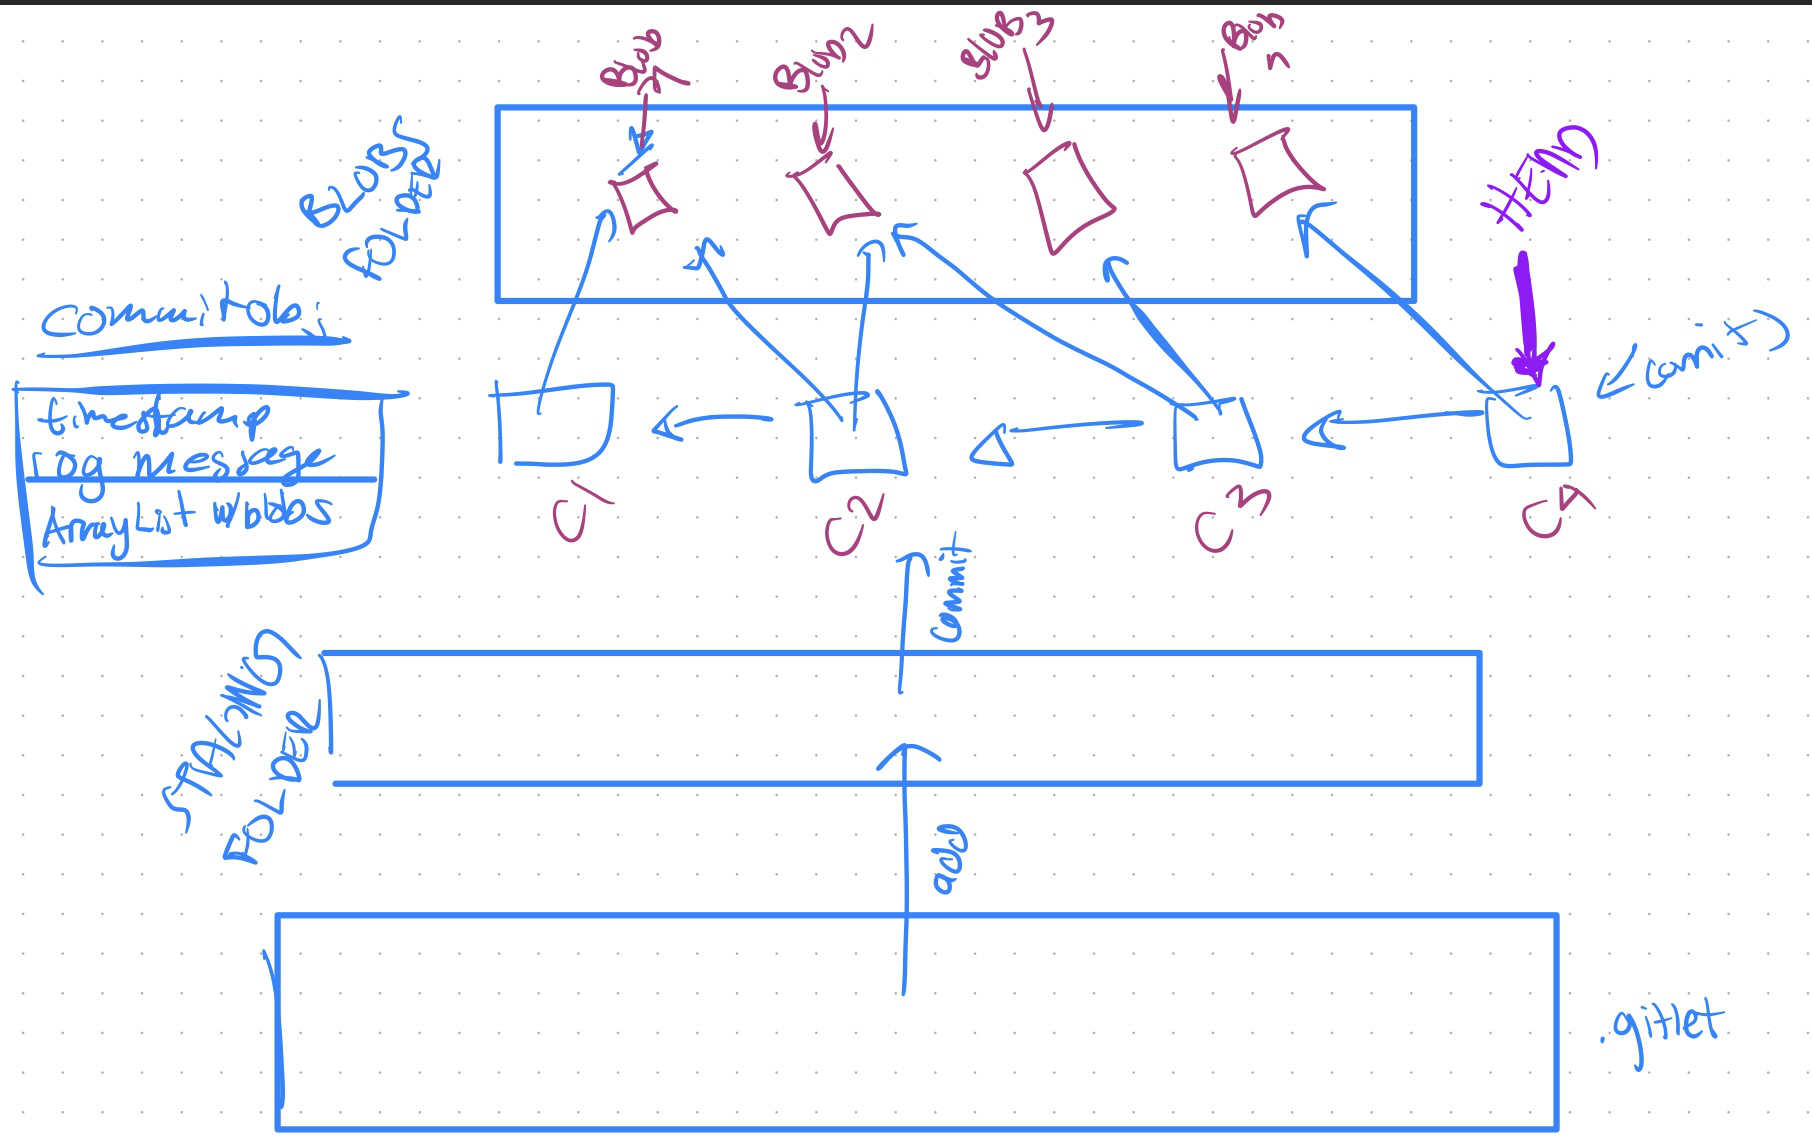 Blob
1
BLOB2
BLOB3
Blob
n
BLOBS
FOLDER
HEAD
CommitObj
timestamp
log message
ArrayList w/blobs
commits
C1
C2
C3
C4
Commit
STAGING
FOLDER
add
.gitlet